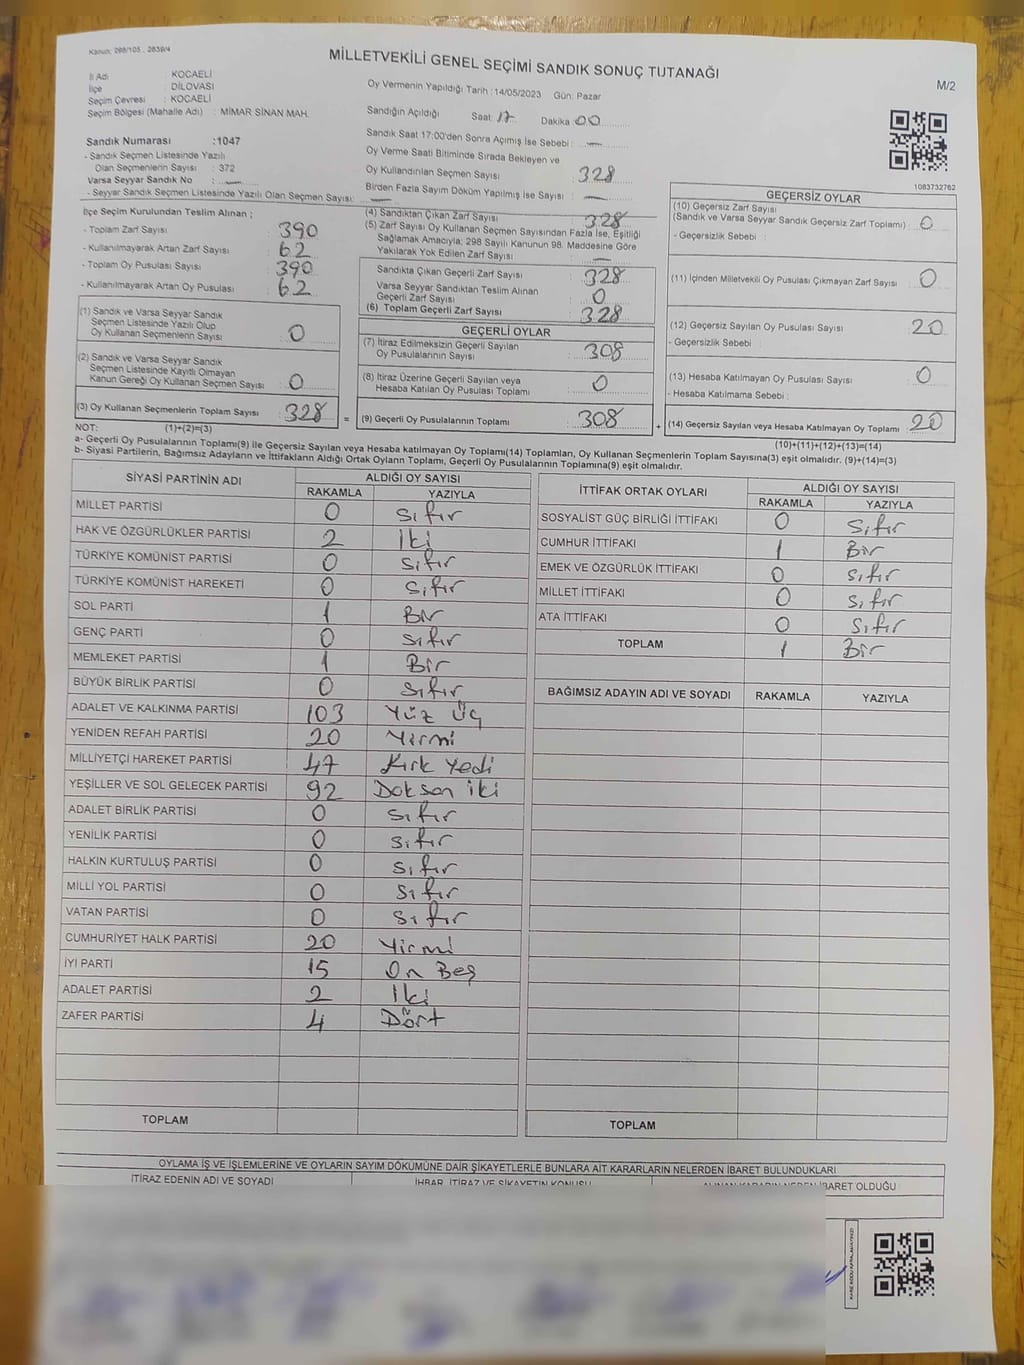 Kanun: 298/105 , 2839/4
MİLLETVEKİLİ GENEL SEÇİMİ SANDIK SONUÇ TUTANAĞI
M/2
İl Adı : KOCAELİ
İlçe : DİLOVASI
Seçim Çevresi : KOCAELİ
Seçim Bölgesi (Mahalle Adı) : MİMAR SİNAN MAH.
Sandık Numarası :1047
- Sandık Seçmen Listesinde Yazılı
Olan Seçmenlerin Sayısı : 372
Varsa Seyyar Sandık No : —
- Seyyar Sandık Seçmen Listesinde Yazılı Olan Seçmen Sayısı: —
Oy Vermenin Yapıldığı Tarih :14/05/2023 Gün: Pazar
Sandığın Açıldığı Saat: 17 Dakika 00
Sandık Saat 17:00'den Sonra Açılmış İse Sebebi : —
Oy Verme Saati Bitiminde Sırada Bekleyen ve
Oy Kullandırılan Seçmen Sayısı : 328
Birden Fazla Sayım Döküm Yapılmış İse Sayısı : —
1083732762
İlçe Seçim Kurulundan Teslim Alınan ;
- Toplam Zarf Sayısı : 390
- Kullanılmayarak Artan Zarf Sayısı : 62
- Toplam Oy Pusulası Sayısı : 390
- Kullanılmayarak Artan Oy Pusulası : 62
(1) Sandık ve Varsa Seyyar Sandık
Seçmen Listesinde Yazılı Olup
Oy Kullanan Seçmenlerin Sayısı : 0
(2) Sandık ve Varsa Seyyar Sandık
Seçmen Listesinde Kayıtlı Olmayan
Kanun Gereği Oy Kullanan Seçmen Sayısı : 0
(3) Oy Kullanan Seçmenlerin Toplam Sayısı : 328
(4) Sandıktan Çıkan Zarf Sayısı : 328
(5) Zarf Sayısı Oy Kullanan Seçmen Sayısından Fazla İse, Eşitliği
Sağlamak Amacıyla; 298 Sayılı Kanunun 98. Maddesine Göre
Yakılarak Yok Edilen Zarf Sayısı : —
Sandıkta Çıkan Geçerli Zarf Sayısı : 328
Varsa Seyyar Sandıktan Teslim Alınan
Geçerli Zarf Sayısı : 0
(6) Toplam Geçerli Zarf Sayısı : 328
GEÇERLİ OYLAR
(7) İtiraz Edilmeksizin Geçerli Sayılan
Oy Pusulalarının Sayısı : 308
(8) İtiraz Üzerine Geçerli Sayılan veya
Hesaba Katılan Oy Pusulası Toplamı : 0
= (9) Geçerli Oy Pusulalarının Toplamı : 308 +
GEÇERSİZ OYLAR
(10) Geçersiz Zarf Sayısı
(Sandık ve Varsa Seyyar Sandık Geçersiz Zarf Toplamı) : 0
- Geçersizlik Sebebi :
(11) İçinden Milletvekili Oy Pusulası Çıkmayan Zarf Sayısı : 0
(12) Geçersiz Sayılan Oy Pusulası Sayısı : 20
- Geçersizlik Sebebi :
(13) Hesaba Katılmayan Oy Pusulası Sayısı : 0
- Hesaba Katılmama Sebebi :
(14) Geçersiz Sayılan veya Hesaba Katılmayan Oy Toplamı : 20
NOT: (1)+(2)=(3)
(10)+(11)+(12)+(13)=(14)
a- Geçerli Oy Pusulalarının Toplamı(9) ile Geçersiz Sayılan veya Hesaba Katılmayan Oy Toplamı(14) Toplamları, Oy Kullanan Seçmenlerin Toplam Sayısına(3) eşit olmalıdır. (9)+(14)=(3)
b- Siyasi Partilerin, Bağımsız Adayların ve İttifakların Aldığı Ortak Oyların Toplamı, Geçerli Oy Pusulalarının Toplamına(9) eşit olmalıdır.
SİYASİ PARTİNİN ADI ALDIĞI OY SAYISI
RAKAMLA YAZIYLA
MİLLET PARTİSİ 0 Sıfır
HAK VE ÖZGÜRLÜKLER PARTİSİ 2 İki
TÜRKİYE KOMÜNİST PARTİSİ 0 Sıfır
TÜRKİYE KOMÜNİST HAREKETİ 0 Sıfır
SOL PARTİ 1 Bir
GENÇ PARTİ 0 Sıfır
MEMLEKET PARTİSİ 1 Bir
BÜYÜK BİRLİK PARTİSİ 0 Sıfır
ADALET VE KALKINMA PARTİSİ 103 Yüz Üç
YENİDEN REFAH PARTİSİ 20 Yirmi
MİLLİYETÇİ HAREKET PARTİSİ 47 Kırk Yedi
YEŞİLLER VE SOL GELECEK PARTİSİ 92 Doksan iki
ADALET BİRLİK PARTİSİ 0 Sıfır
YENİLİK PARTİSİ 0 Sıfır
HALKIN KURTULUŞ PARTİSİ 0 Sıfır
MİLLİ YOL PARTİSİ 0 Sıfır
VATAN PARTİSİ 0 Sıfır
CUMHURİYET HALK PARTİSİ 20 Yirmi
İYİ PARTİ 15 On Beş
ADALET PARTİSİ 2 İki
ZAFER PARTİSİ 4 Dört
TOPLAM
İTTİFAK ORTAK OYLARI ALDIĞI OY SAYISI
RAKAMLA YAZIYLA
SOSYALİST GÜÇ BİRLİĞİ İTTİFAKI 0 Sıfır
CUMHUR İTTİFAKI 1 Bir
EMEK VE ÖZGÜRLÜK İTTİFAKI 0 Sıfır
MİLLET İTTİFAKI 0 Sıfır
ATA İTTİFAKI 0 Sıfır
TOPLAM 1 Bir
BAĞIMSIZ ADAYIN ADI VE SOYADI RAKAMLA YAZIYLA
TOPLAM
OYLAMA İŞ VE İŞLEMLERİNE VE OYLARIN SAYIM DÖKÜMÜNE DAİR ŞİKAYETLERLE BUNLARA AİT KARARLARIN NELERDEN İBARET BULUNDUKLARI
İTİRAZ EDENİN ADI VE SOYADI İHBAR, İTİRAZ VE ŞİKAYETİN KONUSU ALINAN KARARIN NEDEN İBARET OLDUĞU